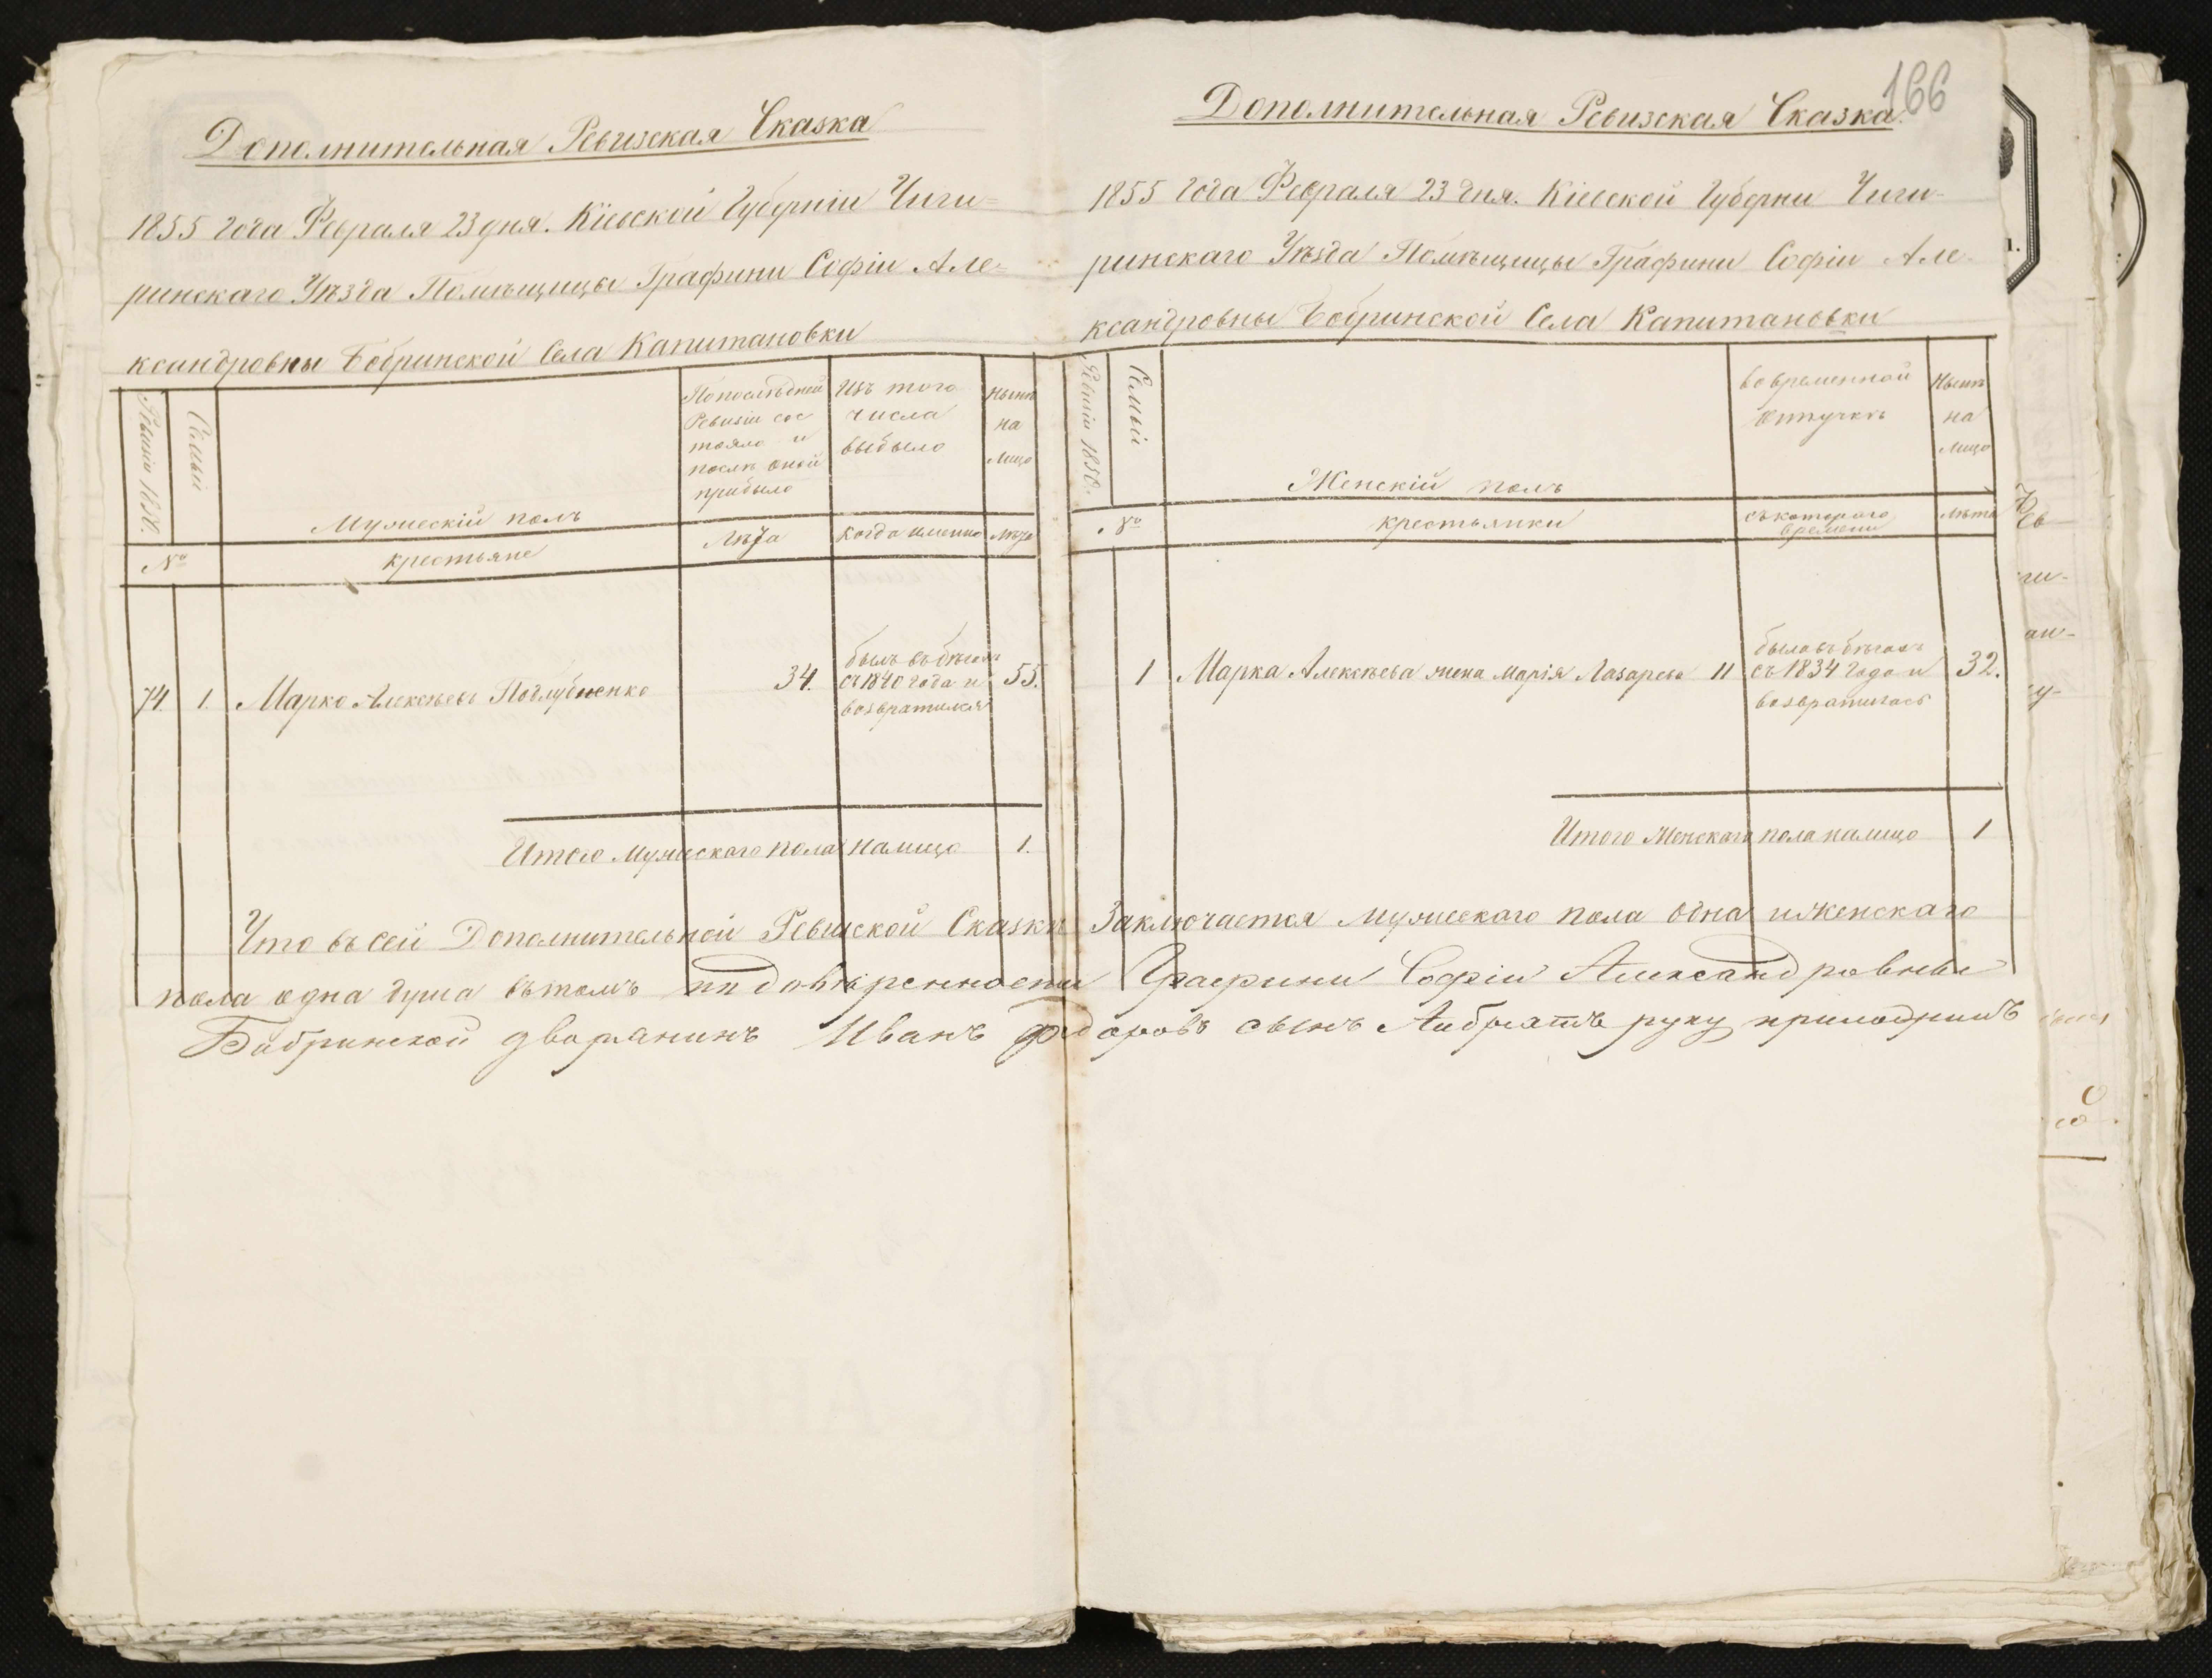 Дополнительная Ревизская Сказка
1855 года Февраля 23 дня. Кіевской Губерніи Чиги=
ринскаго Уѣзда Помѣщицы Графини Софіи Але=
ксандровны Бобринской Села Капитановки
Ревизіи 1850.
Семьи
Мужескій полъ
По последней
Ревизіи сос
тояло и
послѣ оной
прибыло
Изъ того
числа
выбыло
Нынѣ
на
лицо
№
крестьяне
Лѣта
Когда именно
Лѣта
74. 1. Марко Алексѣевъ 34. 55.
былъ въ бѣгахъ
съ 1840 года и
возвратился
Итого Мужескаго пола налицо 1.
166
Дополнительная Ревизская Сказка.
1855 года Февраля 23 дня. Кіевской Губерни Чиги-
ринскаго Уѣзда Помѣщицы Графини Софіи Але-
ксандровны Бобринской Села Капитановки
Ревизіи 1850.
Семьи
Женскій полъ
во временной
отлучкѣ
Нынѣ
на
лицо
№
крестьянки
съ котораго
времени
Лѣта
1 Марка Алексѣева жена Марія Лазарева 11 32.
была въ бѣгахъ
съ 1834 года и
возвратилась
Итого Женскаго пола налицо 1
Что въ сей Дополнительной Ревизской Сказки Заключается мужескаго пола одна и женскаго
пола одна душа въ томъ по довѣренности Графини Софіи Александровны
Бобринской дворянинъ Иванъ Федоровъ сынъ руку приложилъ